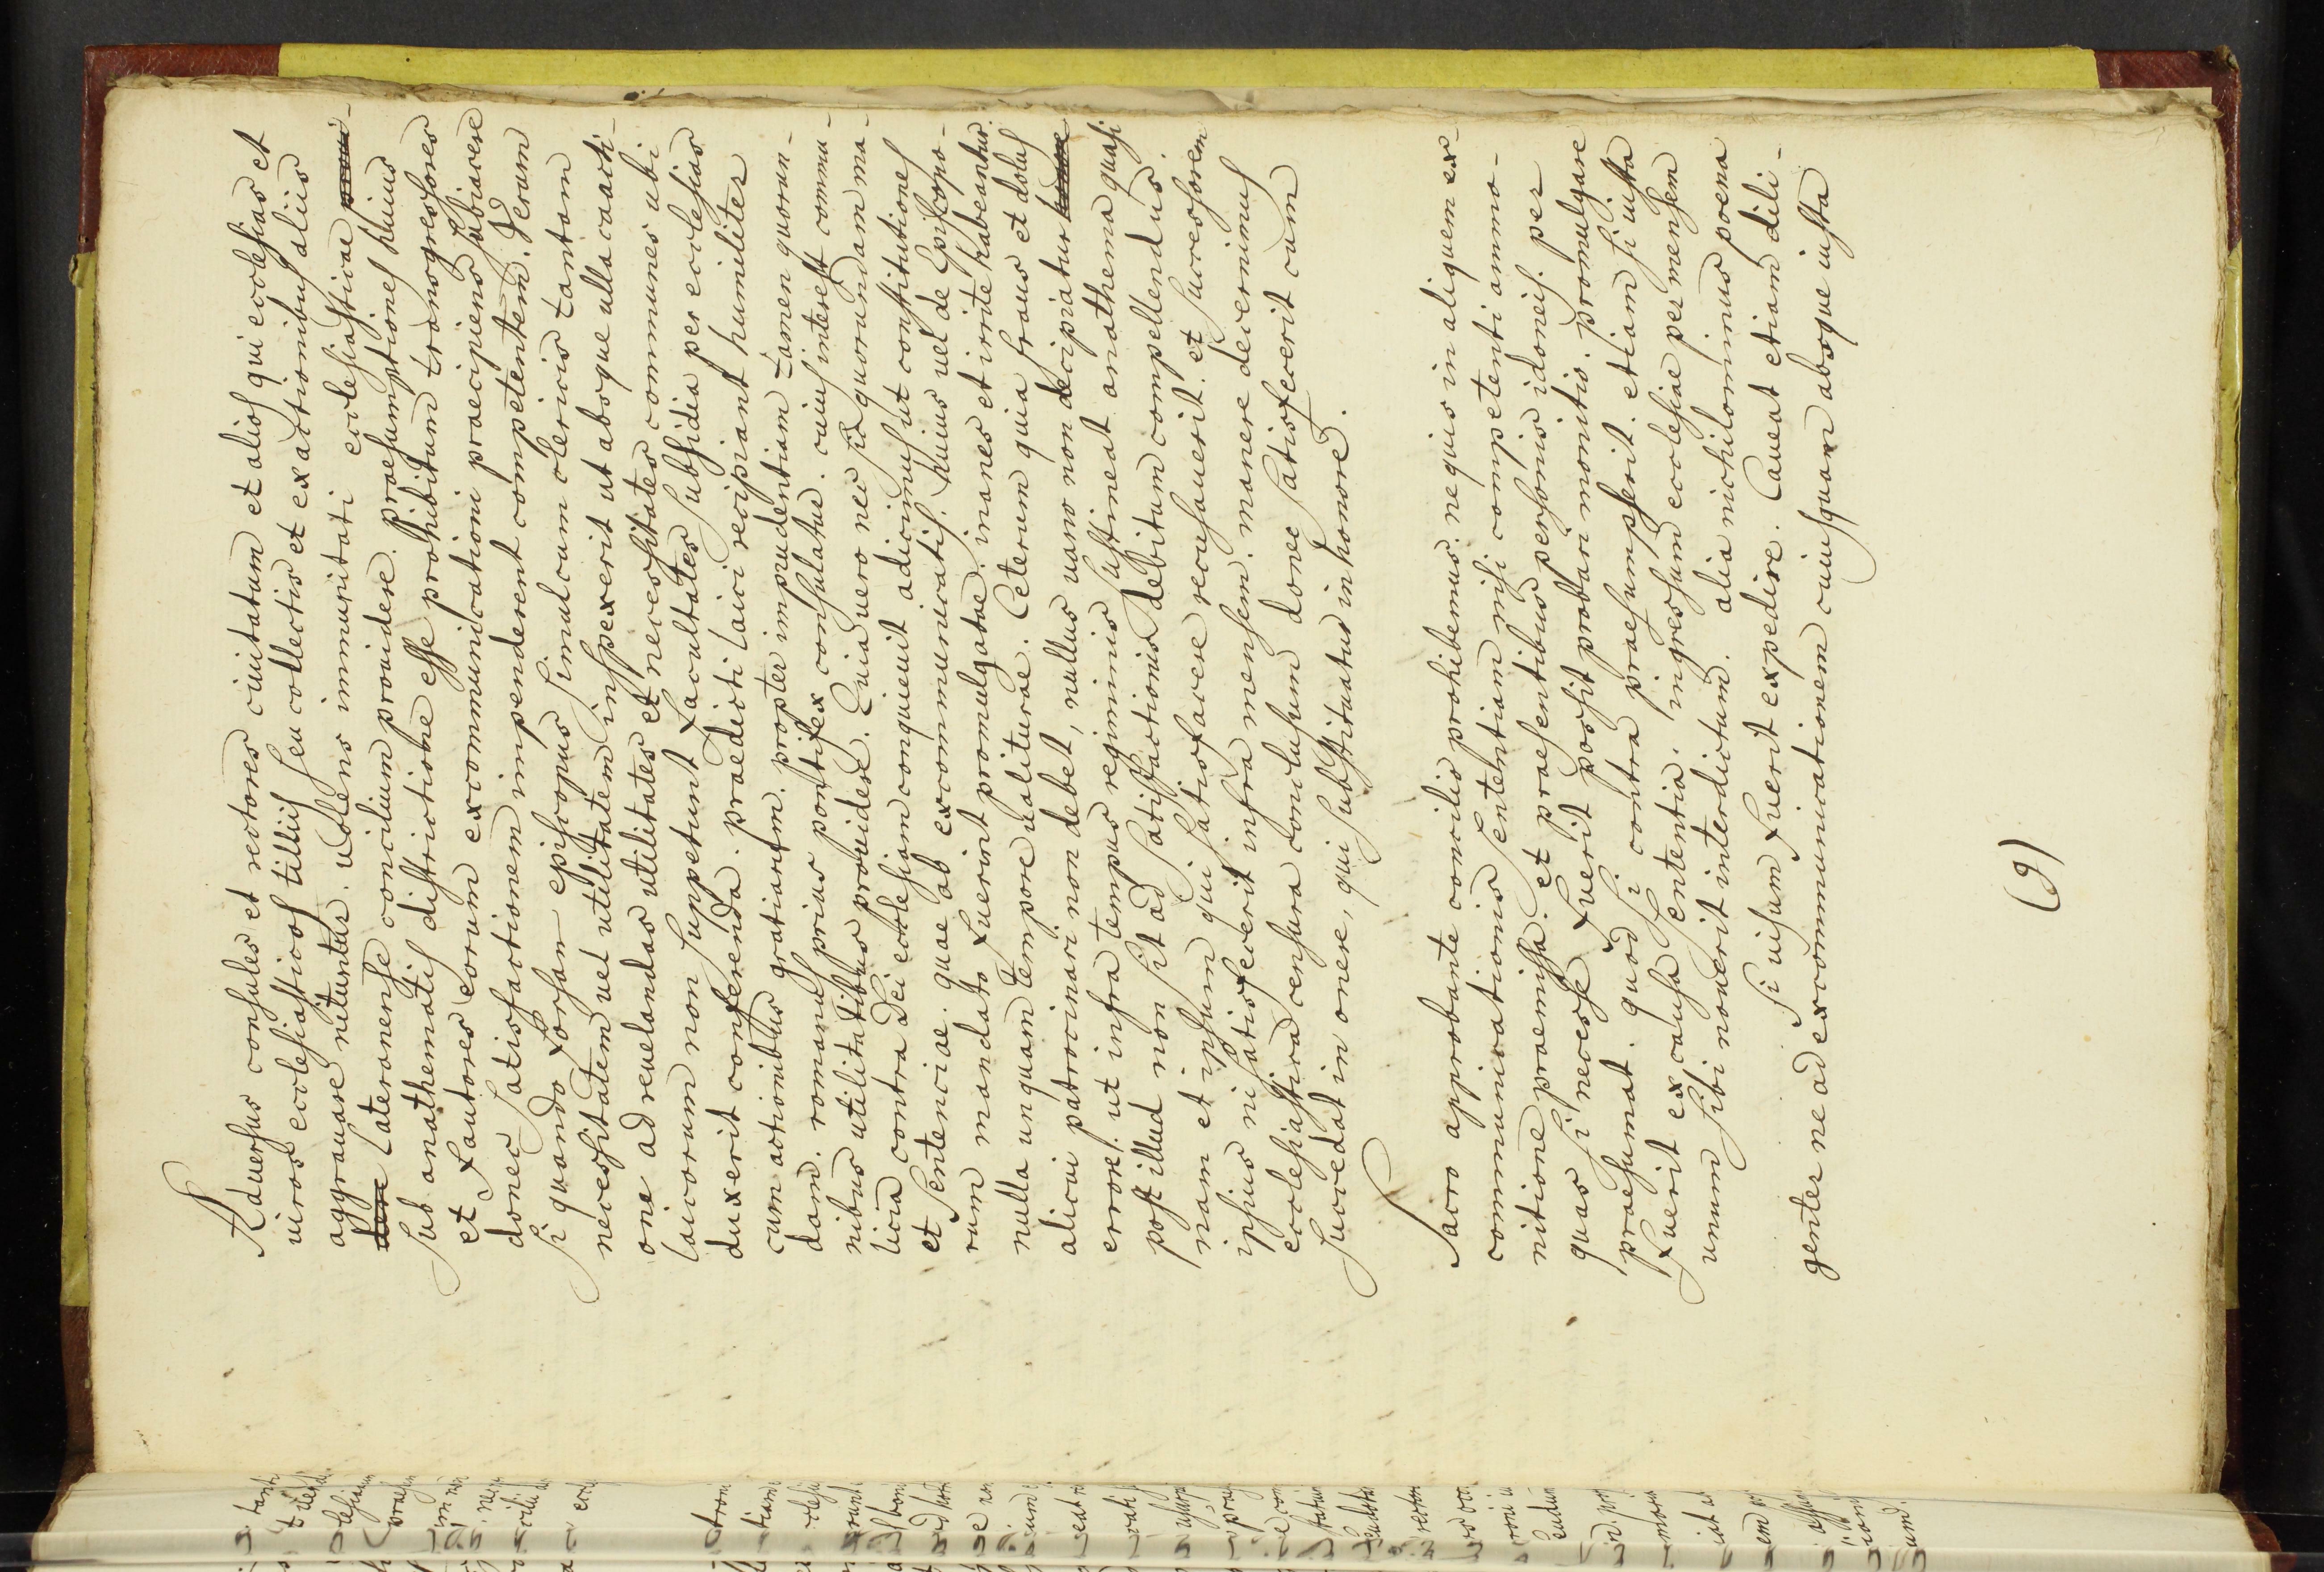 Aduersus consules et rectores ciuitatum et alios qui ecclesias et
uiros ecclesiasticos tilliis seu collectis et exactionibus aliis
aggrauare nituntur. uolens immunitati ecclesiasticae
lateranense concilium prouidere. praesumptiones huius
sub anathematis districtione esse prohibitum transgressores
et fautores eorum excommunicationi praecipiens subiacere
donec satisfactionem impenderent competentem. Verum
si quando forsam episcopus simul cum clericis tantam
necessitatem uel utilitatem inspexerit ut absque ulla coacti-
one ad reuelandas utilitates et necessitates communes ubi
laicorum non suppetunt facultates subsidia per ecclesias
duxerit conferenda. praedicti laici recipiant humiliter
cum actionibus gratiarum. propter imprudentiam tamen quorun-
dam. romanus prius pontifex consulatur. cuius interest commu-
nibus utilitatibus prouidere. Quia uero nec sic quorundam ma-
licia contra Dei ecclesiam conquieuit adicimus ut constitutiones
et sentenciae. quae ab excommunicatis. huius uel de Episcopo-
rum mandato fuerint promulgatae. inanes et irrite habeantur.
nulla unquam tempore ualiturae. Ceterum quia fraus et dolus
alicui patrocinari non debet, nullus uano non decipiatur
errore. ut infra tempus regiminis sustineat anathema quasi
post illud non sit ad satisfactionis debitum compellendus.
nam et ipsum qui satisfacere recusauerit. et successorem
ipsius ni satisfecerit infra mensem. manere decernimus
ecclesiastica censura conclusum donec satisfecerit cum
succedat in onere, qui substituatur in honore.
Sacro approbante concilio prohibemus. ne quis in aliquem ex-
communicationis sententiam nisi competenti ammo-
nitione praemissa. et praesentibus personis idoneis. per
quas si necesse fuerit possit probari monitio. promulgare
praesumat. quod si contra praesumpserit. etiam si iusta
fuerit ex causa sententia. ingressum ecclesiae per mensem
unum sibi nouerit interdictum. alia nichilominus poena
si uisum fuerit expedire. Caueat etiam dili-
genter ne ad excommunicationem cuiusquam absque iusta
(9)